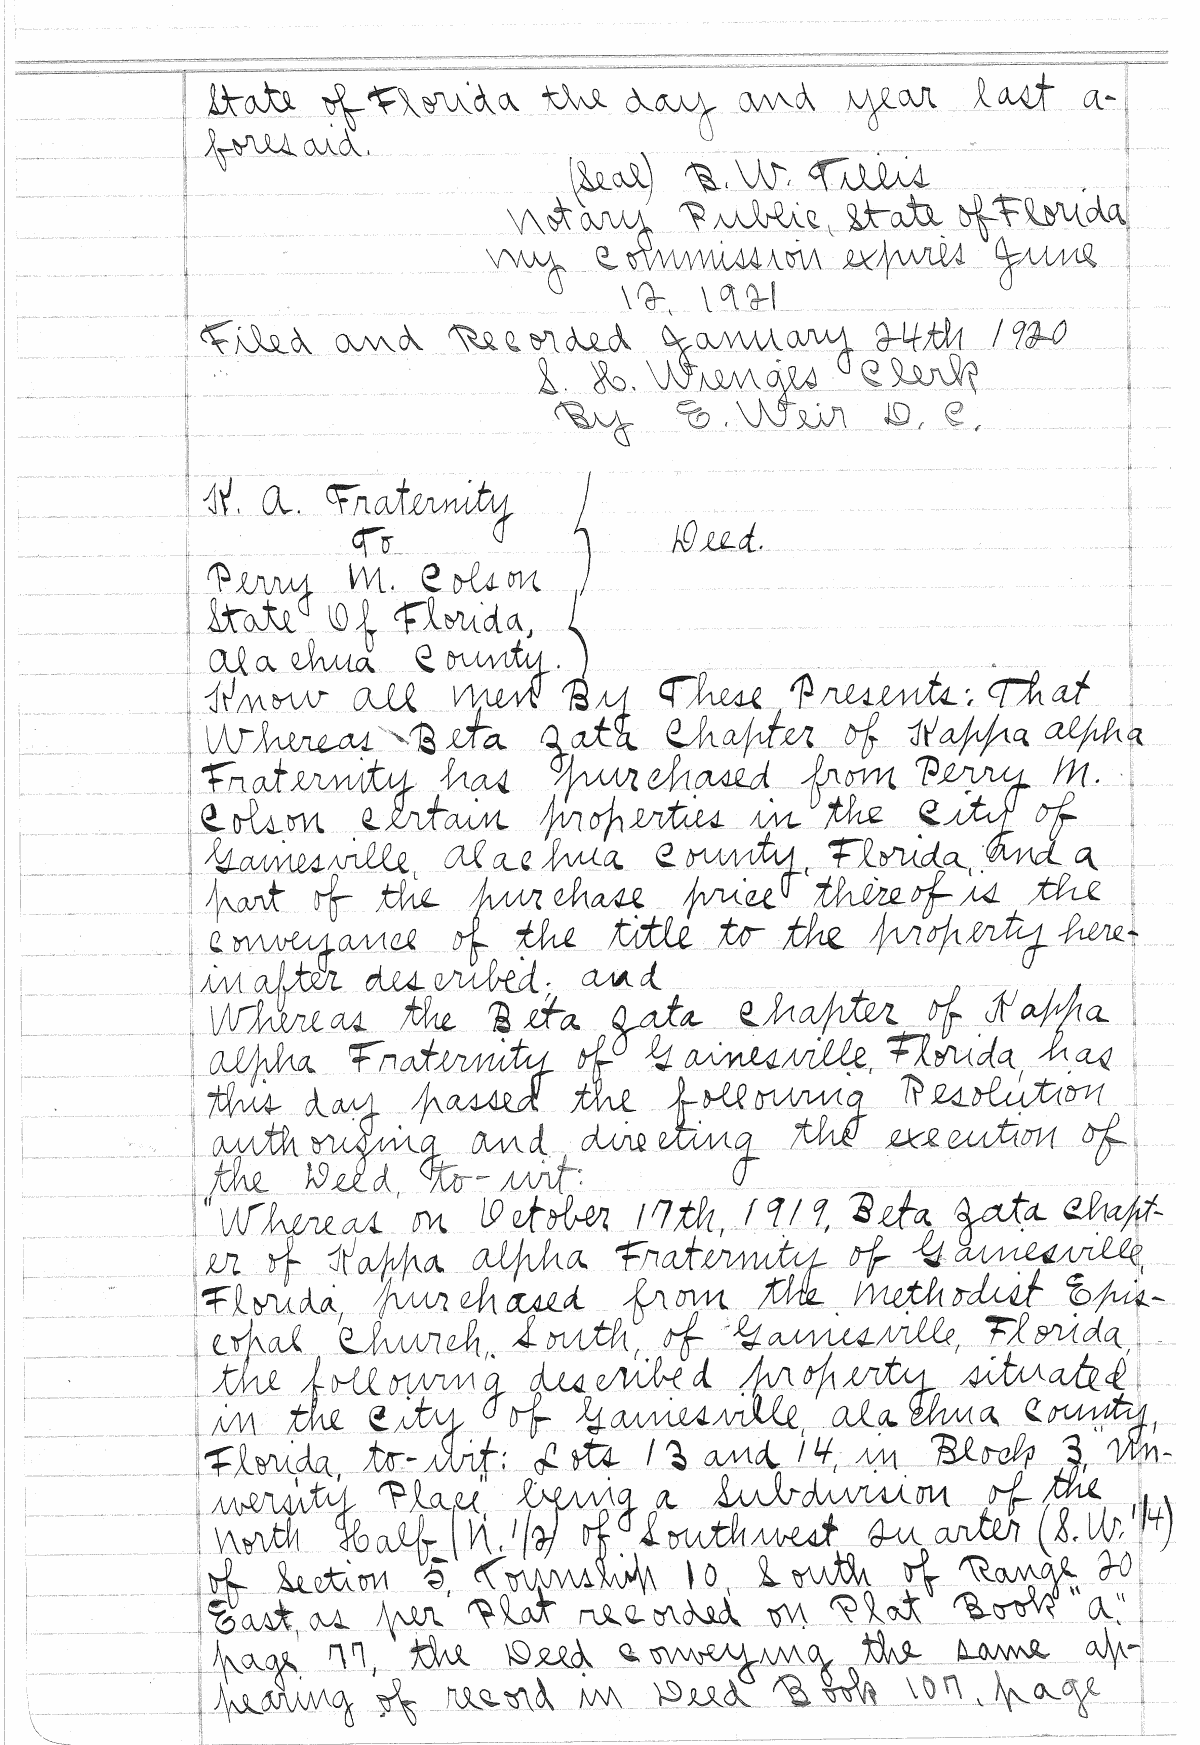 State of Florida the day and year last a-
foresaid.
(Seal) B. W. Tillis
Notary Public, State of Florida
My Commission expires June
12, 1921
Filed and Recorded January 24th 1920
S. H. Wienges Clerk
By E. Weir D. C.
K. A. Fraternity
To
Deed.
Perry M. Colson
State Of Florida,
Alachua County.
Know All Men By These Presents: That
Whereas Beta Zata Chapter of Kappa Alpha
Fraternity has purchased from Perry M.
Colson certain properties in the City of
Gainesville, Alachua County, Florida, and a
part of the purchase price thereof is the
conveyance of the title to the property here-
inafter described; and
Whereas the Beta Zata Chapter of Kappa
Alpha Fraternity of Gainesville, Florida, has
this day passed the following Resolution
authorizing and directing the execution of
the Deed, to-wit:
"Whereas on October 17th, 1919, Beta Zata Chapt-
er of Kappa Alpha Fraternity of Gainesville,
Florida, purchased from the Methodist Epis-
copal Church, South, of Gainesville, Florida,
the following described property situated
in the City of Gainesville, Alachua County,
Florida, to-wit: Lots 13 and 14, in Block 3, "Un-
iversity Place" being a Subdivision of the
North Half (N. 1/2) of Southwest Quarter (S.W. 1/4)
of Section 5, Township 10, South of Range 20
East, as per Plat recorded on Plat Book "A,"
page 77, the Deed conveying the same ap-
pearing of record in Deed Book 107, page